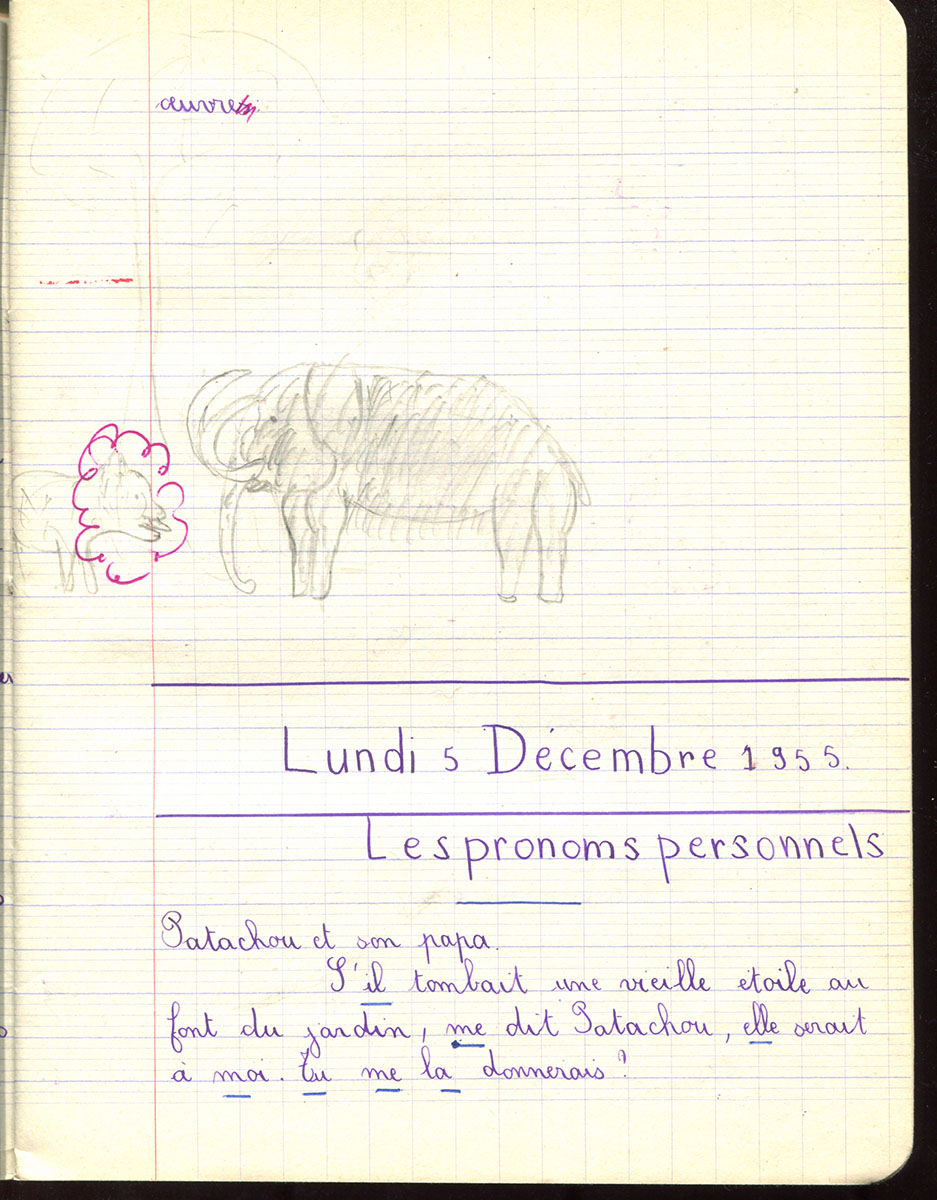 œuvre
Lundi 5 Décembre 1955.
Les pronoms personnels
Patachou et son papa.
S'il tombait une vieille étoile au
font du jardin, me dit Patachou, elle serait
à moi. Tu me la donnerais ?